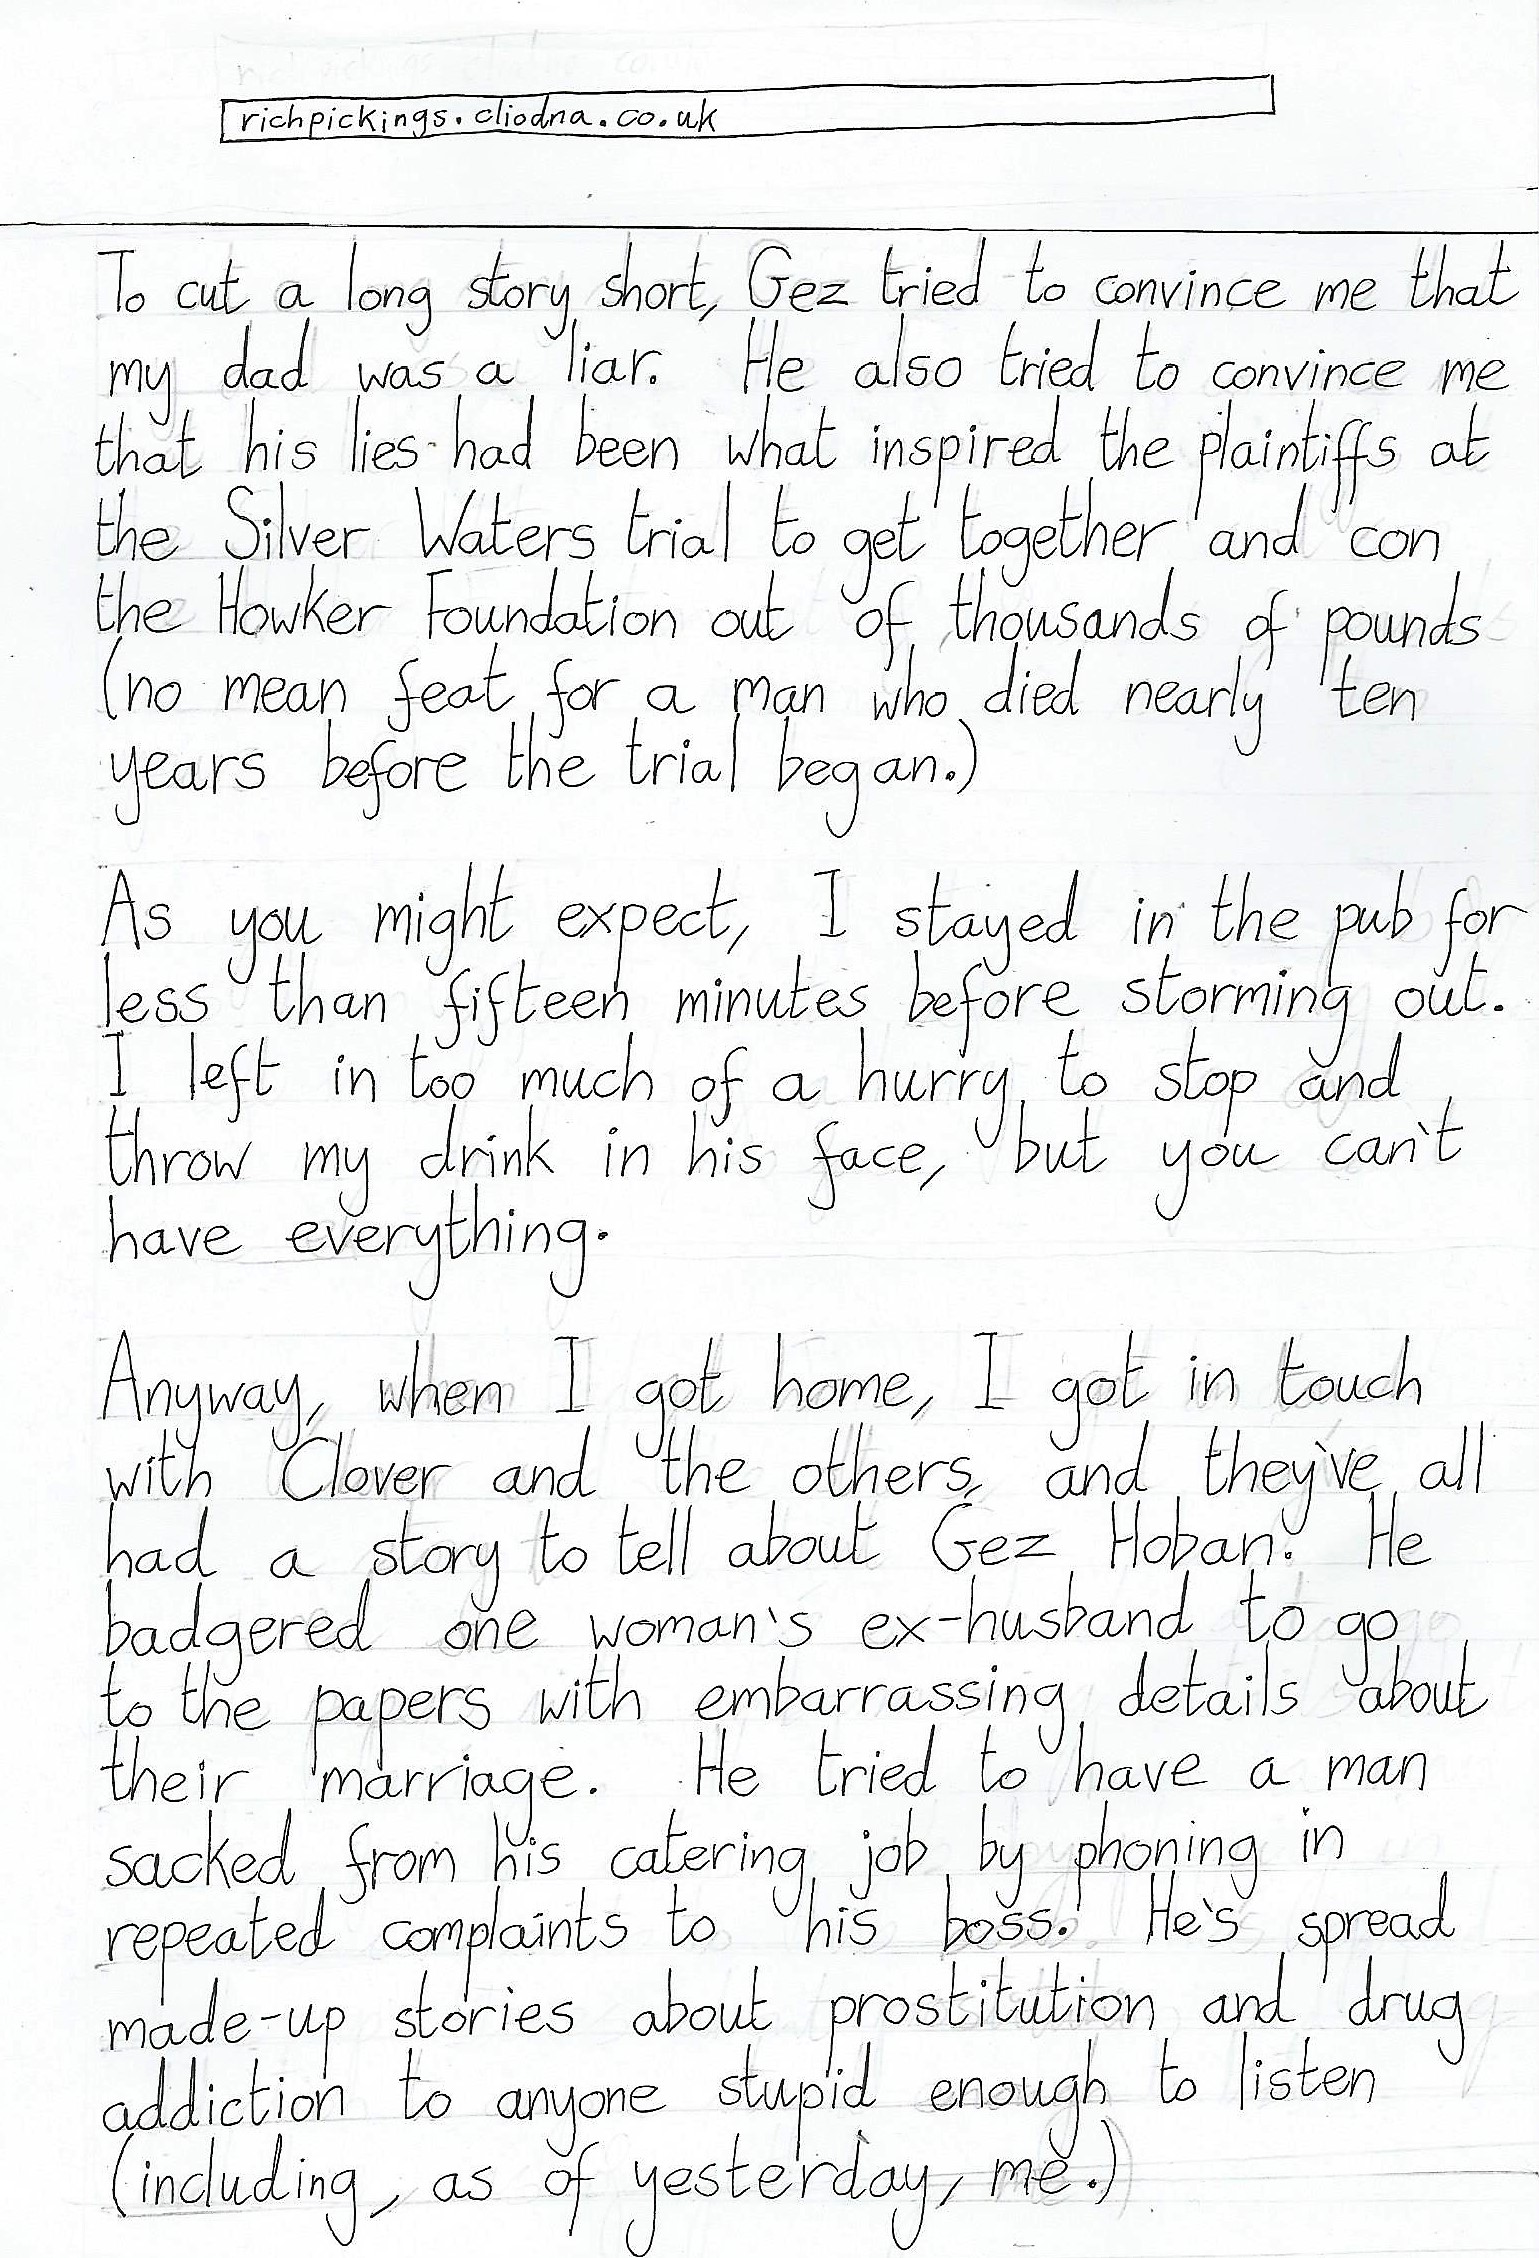 richpickings.cliodna.co.uk
To cut a long story short, Gez tried to convince me that
my dad was a liar. He also tried to convince me
that his lies had been what inspired the plaintiffs at
the Silver Waters trial to get together and con
the Howker Foundation out of thousands of pounds
(no mean feat for a man who died nearly ten
years before the trial began.)
As you might expect, I stayed in the pub for
less than fifteen minutes before storming out.
I left in too much of a hurry to stop and
throw my drink in his face, but you can't
have everything.
Anyway, when I got home, I got in touch
with Clover and the others, and they've all
had a story to tell about Gez Hoban. He
badgered one woman's ex-husband to go
to the papers with embarrassing details about
their marriage. He tried to have a man
sacked from his catering job by phoning in
repeated complaints to his boss. He's spread
made-up stories about prostitution and drug
addiction to anyone stupid enough to listen
(including, as of yesterday, me.)